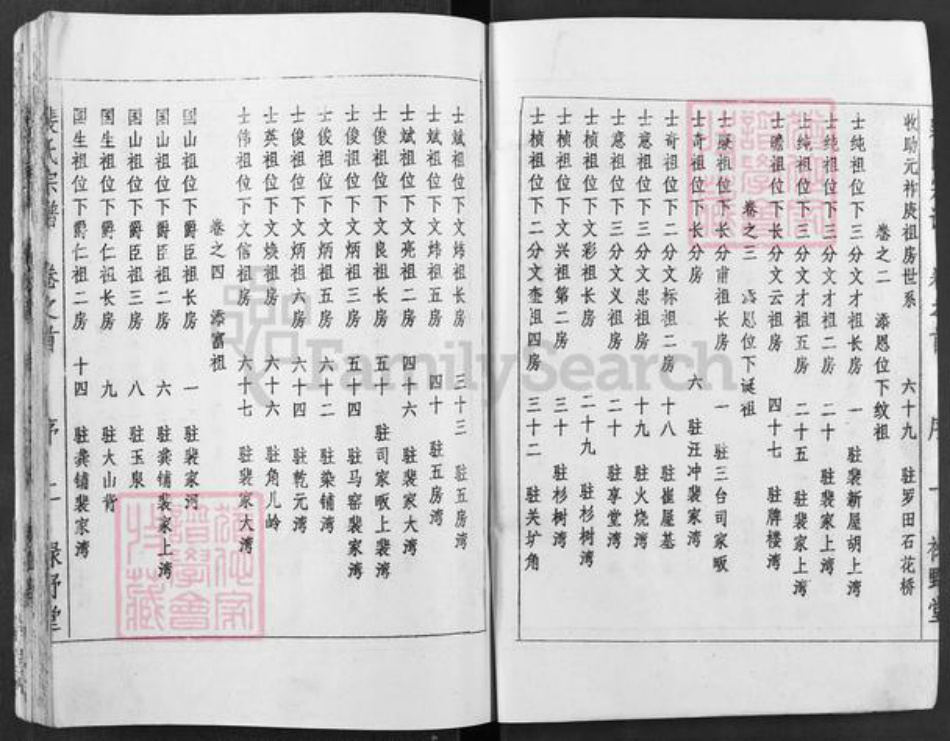 收助元祚庚祖房世系 六十九 驻罗田石花桥
卷之二 添恩位下纹祖
士纯祖位下三分文才祖长房 一 驻裴新屋胡上湾
士纯祖位下三分文才祖二房 二十 驻裴家上湾
士纯祖位下三分文才祖五房 二十五 驻裴家上湾
士赡祖位下长分文云祖房 四十七 驻牌楼湾
卷之三 添恩位下诞祖
士 祖位下三分甫祖长房 一 驻三台司家畈
士奇祖位下长分房 六 驻汪冲裴家湾
士奇祖位下二分文标祖二房 十八 驻崔屋基
士意祖位下三分文忠祖房 十九 驻火烧湾
士意祖位下三分文义祖房 二十 驻享堂湾
士桢祖位下文彩祖长房 二十九 驻杉树湾
士桢祖位下文兴祖第二房 三十 驻杉树湾
士桢祖位下二分文奎祖四房 三十二 驻关圹角
裴氏宗谱 卷之首 序 一 绿野堂
士斌祖位下文炜祖长房 三十三 驻五房湾
士斌祖位下文炜祖五房 四十 驻五房湾
士斌祖位下文亮祖二房 四十六 驻裴家大湾
士俊祖位下文良祖长房 五十 驻司家畈上裴湾
士俊祖位下文炳祖三房 五十四 驻马窑裴家湾
士俊祖位下文炳祖五房 六十二 驻染铺湾
士俊祖位下文炳祖六房 六十四 驻乾元湾
士英祖位下文焕祖房 六十六 驻角儿岭
士伟祖位下文信祖房 六十七 驻裴家大湾
卷之四 添富祖
国山祖位下爵臣祖长房 一 驻裴家河
国山祖位下爵臣祖二房 六 驻龚铺裴家上湾
国山祖位下爵臣祖三房 八 驻玉泉
国生祖位下爵仁祖长房 九 驻大山背
国生祖位下爵仁祖二房 十四 驻龚铺裴家湾
裴氏宗谱 卷之首 序 二 绿野堂
FamilySearch